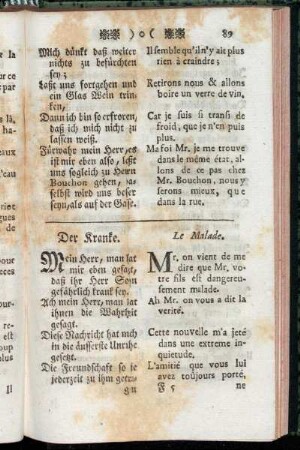 )o( 89
Mich dünkt daß weiter
nichts zu befürchten
sey;
Laßt uns fortgehen und
ein Glas Wein trin-
ken,
Dann ich bin so erfroren,
daß ich mich nicht zu
lassen weiß.
Fürwahr mein Herr, es
ist mir eben also, lasst
uns sogleich zu Herrn
Bouchon gehen, da-
selbst wird uns besser
seyn, als auf der Gasse.
Il semble qu'il n'y ait plus
rien à craindre;
Retirons nous & allons
boire un verre de vin,
Car je suis si transi de
froid, que je n'en puis
plus.
Ma foi Mr. je me trouve
dans le même état, al-
lons de ce pas chez
Mr. Bouchon, nous y
serons mieux, que
dans la rue.
Der Kranke.
Mein Herr, man hat
mir eben gesagt,
daß ihr Herr Sohn
gefährlich krank sey.
Ach mein Herr, man hat
ihnen die Wahrheit
gesagt.
Diese Nachricht hat mich
in die äusserste Unruhe
gesetzt.
Die Freundschaft so sie
jederzeit zu ihm getra-
gn
Le Malade.
Mr. on vient de me
dire que Mr. vo-
tre fils est dangereu-
sement malade.
Ah Mr. on vous a dit la
verité.
Cette nouvelle m'a jeté
dans une extreme in-
quietude.
L'amitié que vous lui
avez toujours porté,
F 5 ne